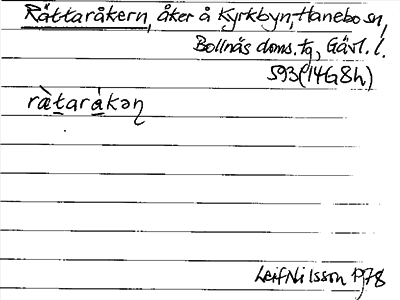 Rättaråkern, åker å Kyrkbyn, Hanebo sn,
Bollnäs doms. tg, Gävl. l.
593 (14G8h)
rà̤taråkəɳ
Leif Nilsson 1978